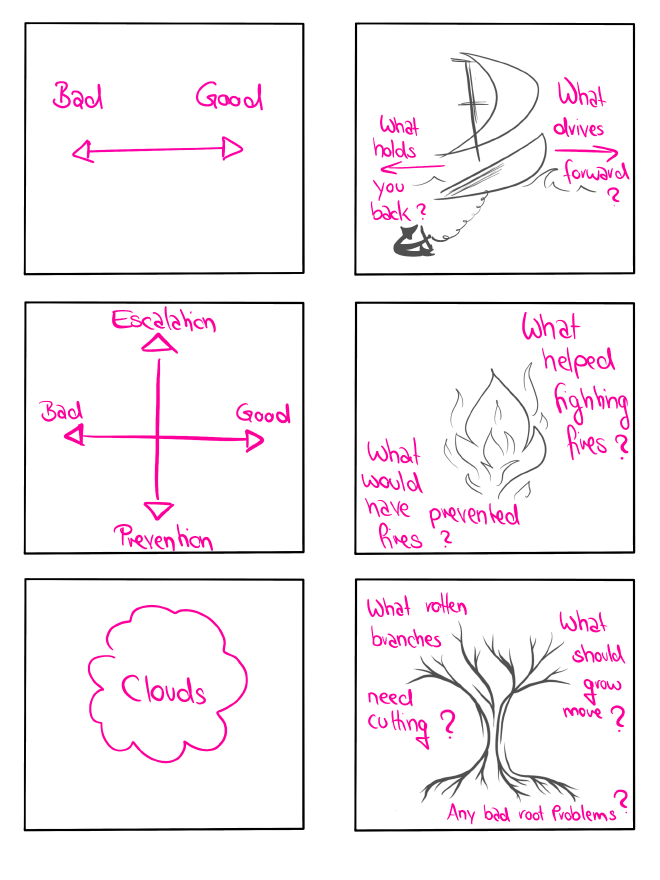 Bad
Good
What
holds
you
back?
What
drives
forward
?
Escalation
Bad
Good
Prevention
What
helped
fighting
fires?
What
would
have prevented
fires ?
Clouds
What rotten
branches
need
cutting ?
What
should
grow
move ?
Any bad root Problems ?